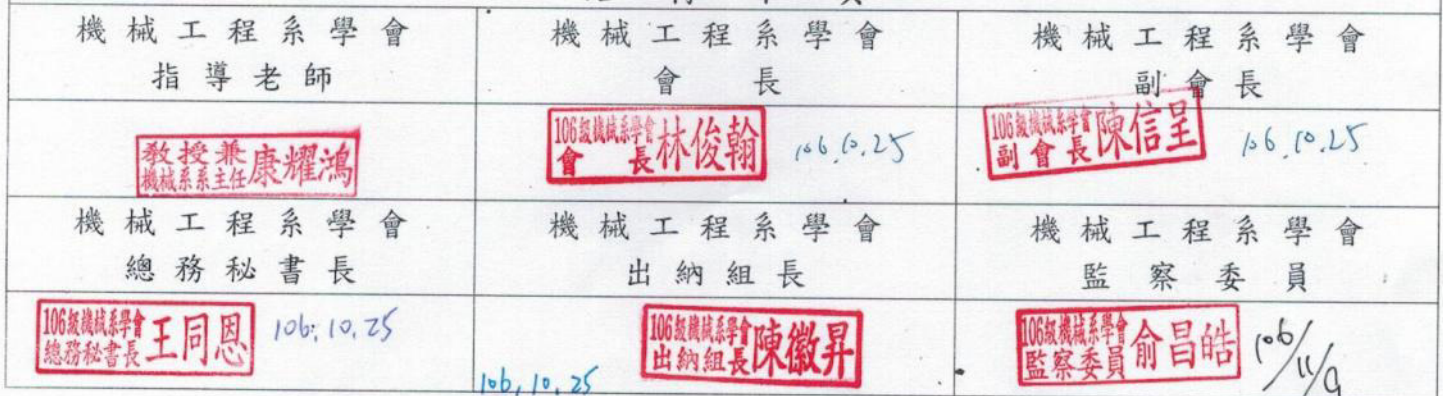 機械工程系學會
指導老師
機械工程系學會
會長
機械工程系學會
副會長
教授兼
機械系系主任 康耀鴻
106級機械系學會
會長 林俊翰
106.10.25
106級機械系學會
副會長 陳信呈
106.10.25
機械工程系學會
總務秘書長
機械工程系學會
出納組長
機械工程系學會
監察委員
106級機械系學會
總務秘書長 王同恩
106.10.25
106級機械系學會
出納組長 陳徽昇
106.10.25
106級機械系學會
監察委員 俞昌皓
106/11/9